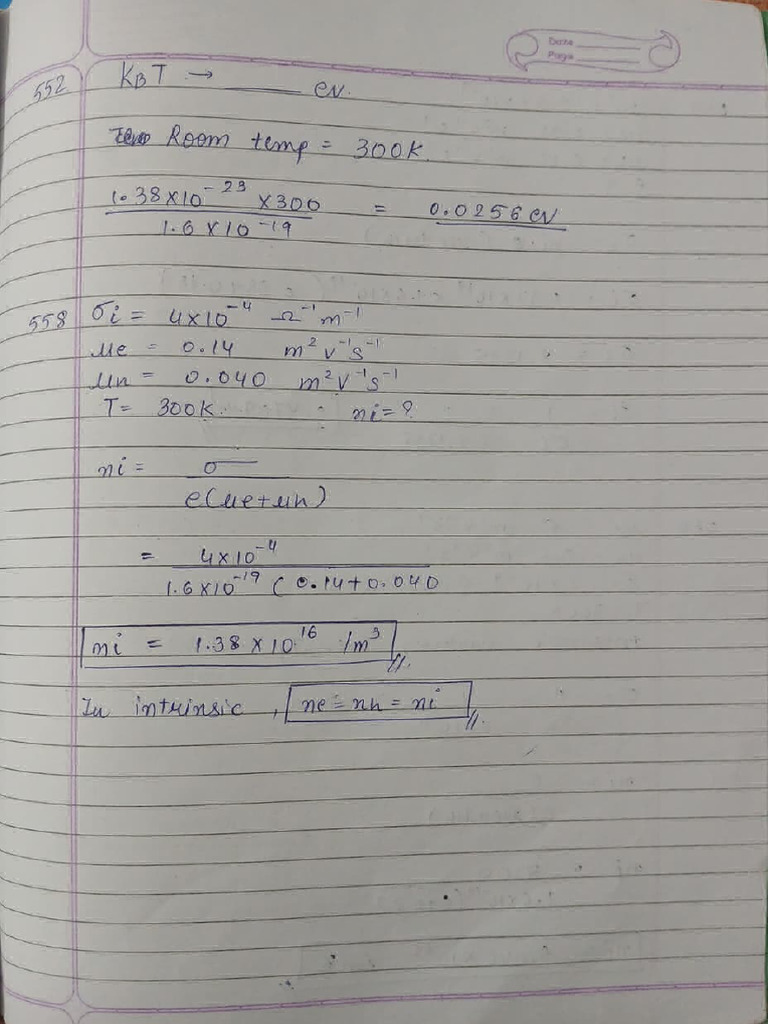 Date
Page
552 KBT → ______ eV.
Room temp = 300K.
1.38×10⁻²³ ×300 = 0.0256 eV
1.6×10⁻¹⁹
558 σi = 4×10⁻⁴ Ω⁻¹m⁻¹
μe = 0.14 m² v⁻¹s⁻¹
μh = 0.040 m²v⁻¹s⁻¹
T= 300K. ni=?
ni = σ
e(μe+μh)
= 4×10⁻⁴
1.6×10⁻¹⁹ ( 0.14+0.040
ni = 1.38×10¹⁶ /m³
In intrinsic , ne=nh=ni